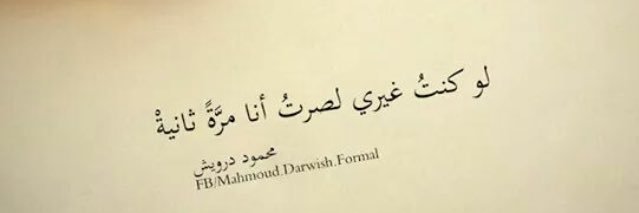 لو كنتُ غيري لصرتُ أنا مرَّةً ثانيةْ
محمود درويش
FB/Mahmoud.Darwish.Formal